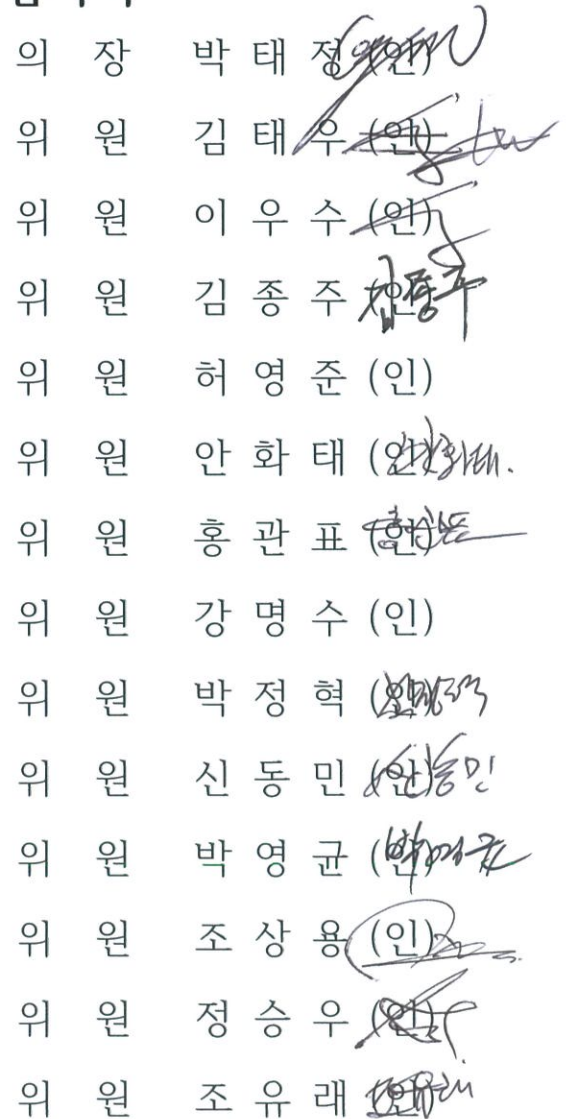 의 장 박 태 정 (인)
위 원 김 태 우 (인)
위 원 이 우 수 (인)
위 원 김 종 주 (인) 김종주
위 원 허 영 준 (인)
위 원 안 화 태 (인) 안화태.
위 원 홍 관 표 (인)
위 원 강 명 수 (인)
위 원 박 정 혁 (인)
위 원 신 동 민 (인) 신동민
위 원 박 영 균 (인) 박영균
위 원 조 상 용 (인)
위 원 정 승 우 (인)
위 원 조 유 래 (인) 조유래